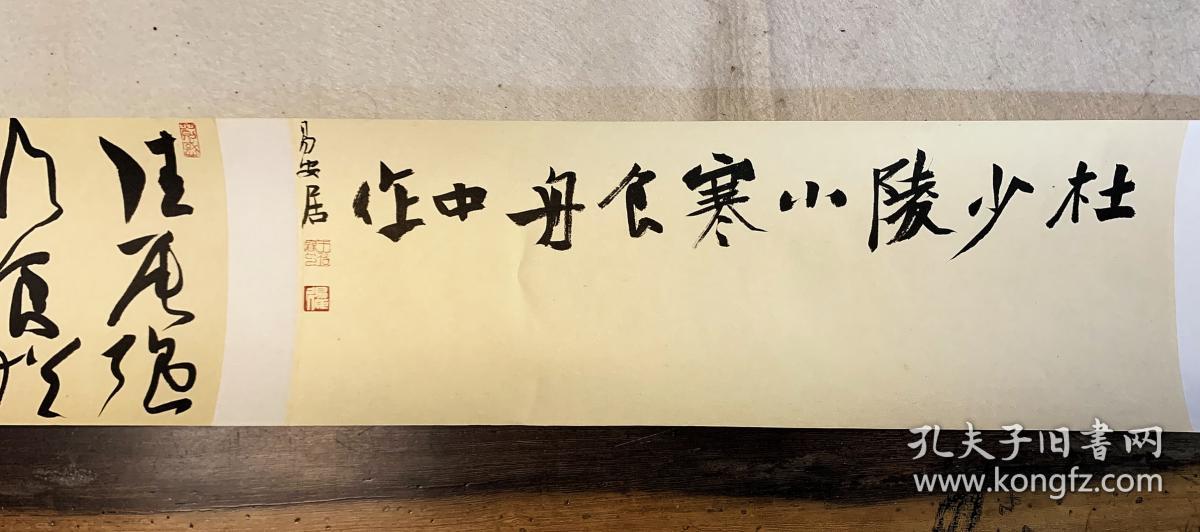 杜少陵小寒食舟中作
易安居
佳辰強
孔夫子旧書网
www.kongfz.com